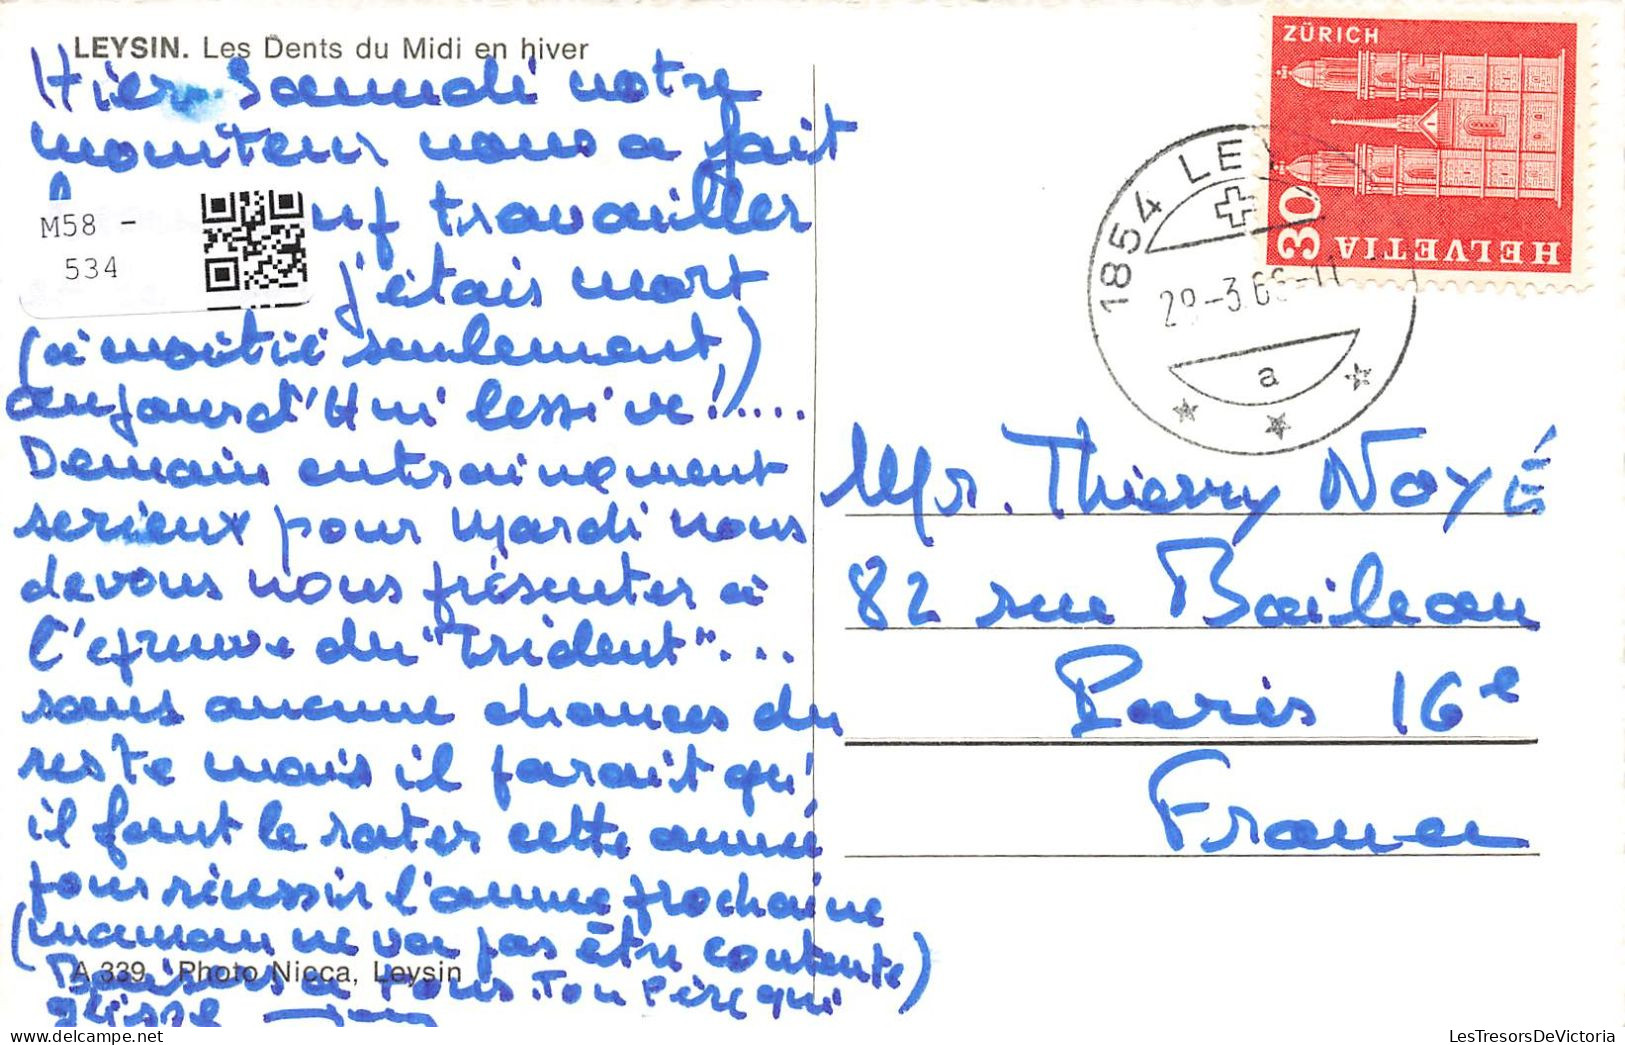 LEYSIN. Les Dents du Midi en hiver
Hier Samedi notre
moniteur nous a fait
uf travailler
j'étais mort
(à moitié seulement)
aujourd'Hui lessivé!....
Demain entrainement
serieux pour Mardi nous
devons nous présenter à
l'épreuve du "Trident"...
sans aucune chances du
reste mais il parait qu'
il faut le rater cette année
pour réussir l'année prochaine
(maman ne va pas être contente)
Baisers à tous. Ton Père qui
glisse
A 339 Photo Nicca, Leysin
M58 -
534
ZÜRICH
30
HELVETIA
1854 LEY
28-3.66-11
a
Mr. Thierry NOYÉ
82 rue Boileau
Paris 16e
France
LesTresorsDeVictoria.com